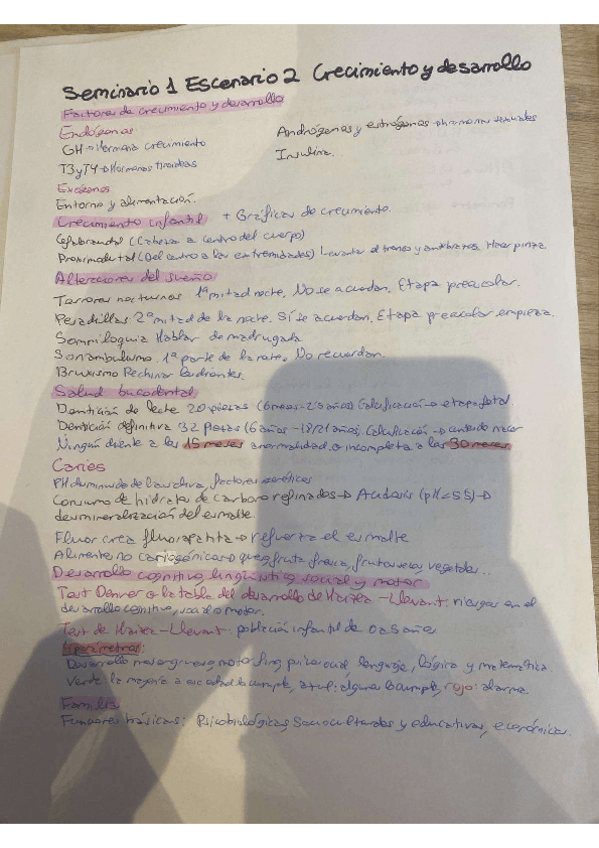 Seminario 1 Escenario 2 Crecimiento y desarrollo
Factores de crecimiento y desarrollo
Endógenos
GH → Hormona crecimiento
T3 y T4 → Hormonas tiroideas
Andrógenos y estrógenos → hormonas sexuales
Insulina...
Exógenos
Entorno y alimentación.
Crecimiento infantil + Gráficas de crecimiento.
Cefalocaudal (Cabeza a centro del cuerpo)
Proximodistal (Del centro a las extremidades) Levanta el tronco y antebrazos. Hacer pinza
Alteraciones del sueño
Terrores nocturnos 1ª mitad noche, No se acuerdan. Etapa preescolar.
Pesadillas 2ª mitad de la noche. Sí se acuerdan. Etapa preescolar empieza.
Somniloquia Hablar de madrugada
Sonambulismo. 1ª parte de la noche. No recuerdan.
Bruxismo Rechinar los dientes.
Salud bucodental
Dentición de leche 20 piezas (6 meses - 2'5 años) Calcificación → etapa fetal.
Dentición definitiva 32 piezas (6 años - 18/21 años). Calcificación → antes de nacer
Ningún diente a los 15 meses anormalidad o incompleta a los 30 meses.
Caries
PH disminuido de la saliva, factores genéticos
Consumo de hidratos de carbono refinados → Acidosis (pH < 5'5) →
desmineralización del esmalte
Fluor crea fluorapatita → refuerza el esmalte
Alimentos no cariogénicos → queso, fruta fresca, frutos secos, vegetales...
Desarrollo cognitivo, lingüístico, social y motor
Test Denver o la tabla del desarrollo de Haizea-Llevant: riesgos en el
desarrollo cognitivo, social o motor.
Test de Haizea-Llevant: población infantil de 0 a 5 años
parámetros:
Desarrollo motor grueso, motor fino, psicosocial, lenguaje, lógica y matemática.
Verde: la mayoría a esa edad lo cumple, azul: algunos lo cumple, rojo: alarma.
Familia
Funciones básicas: Psicobiológicas, Socioculturales y educativas, económicas.